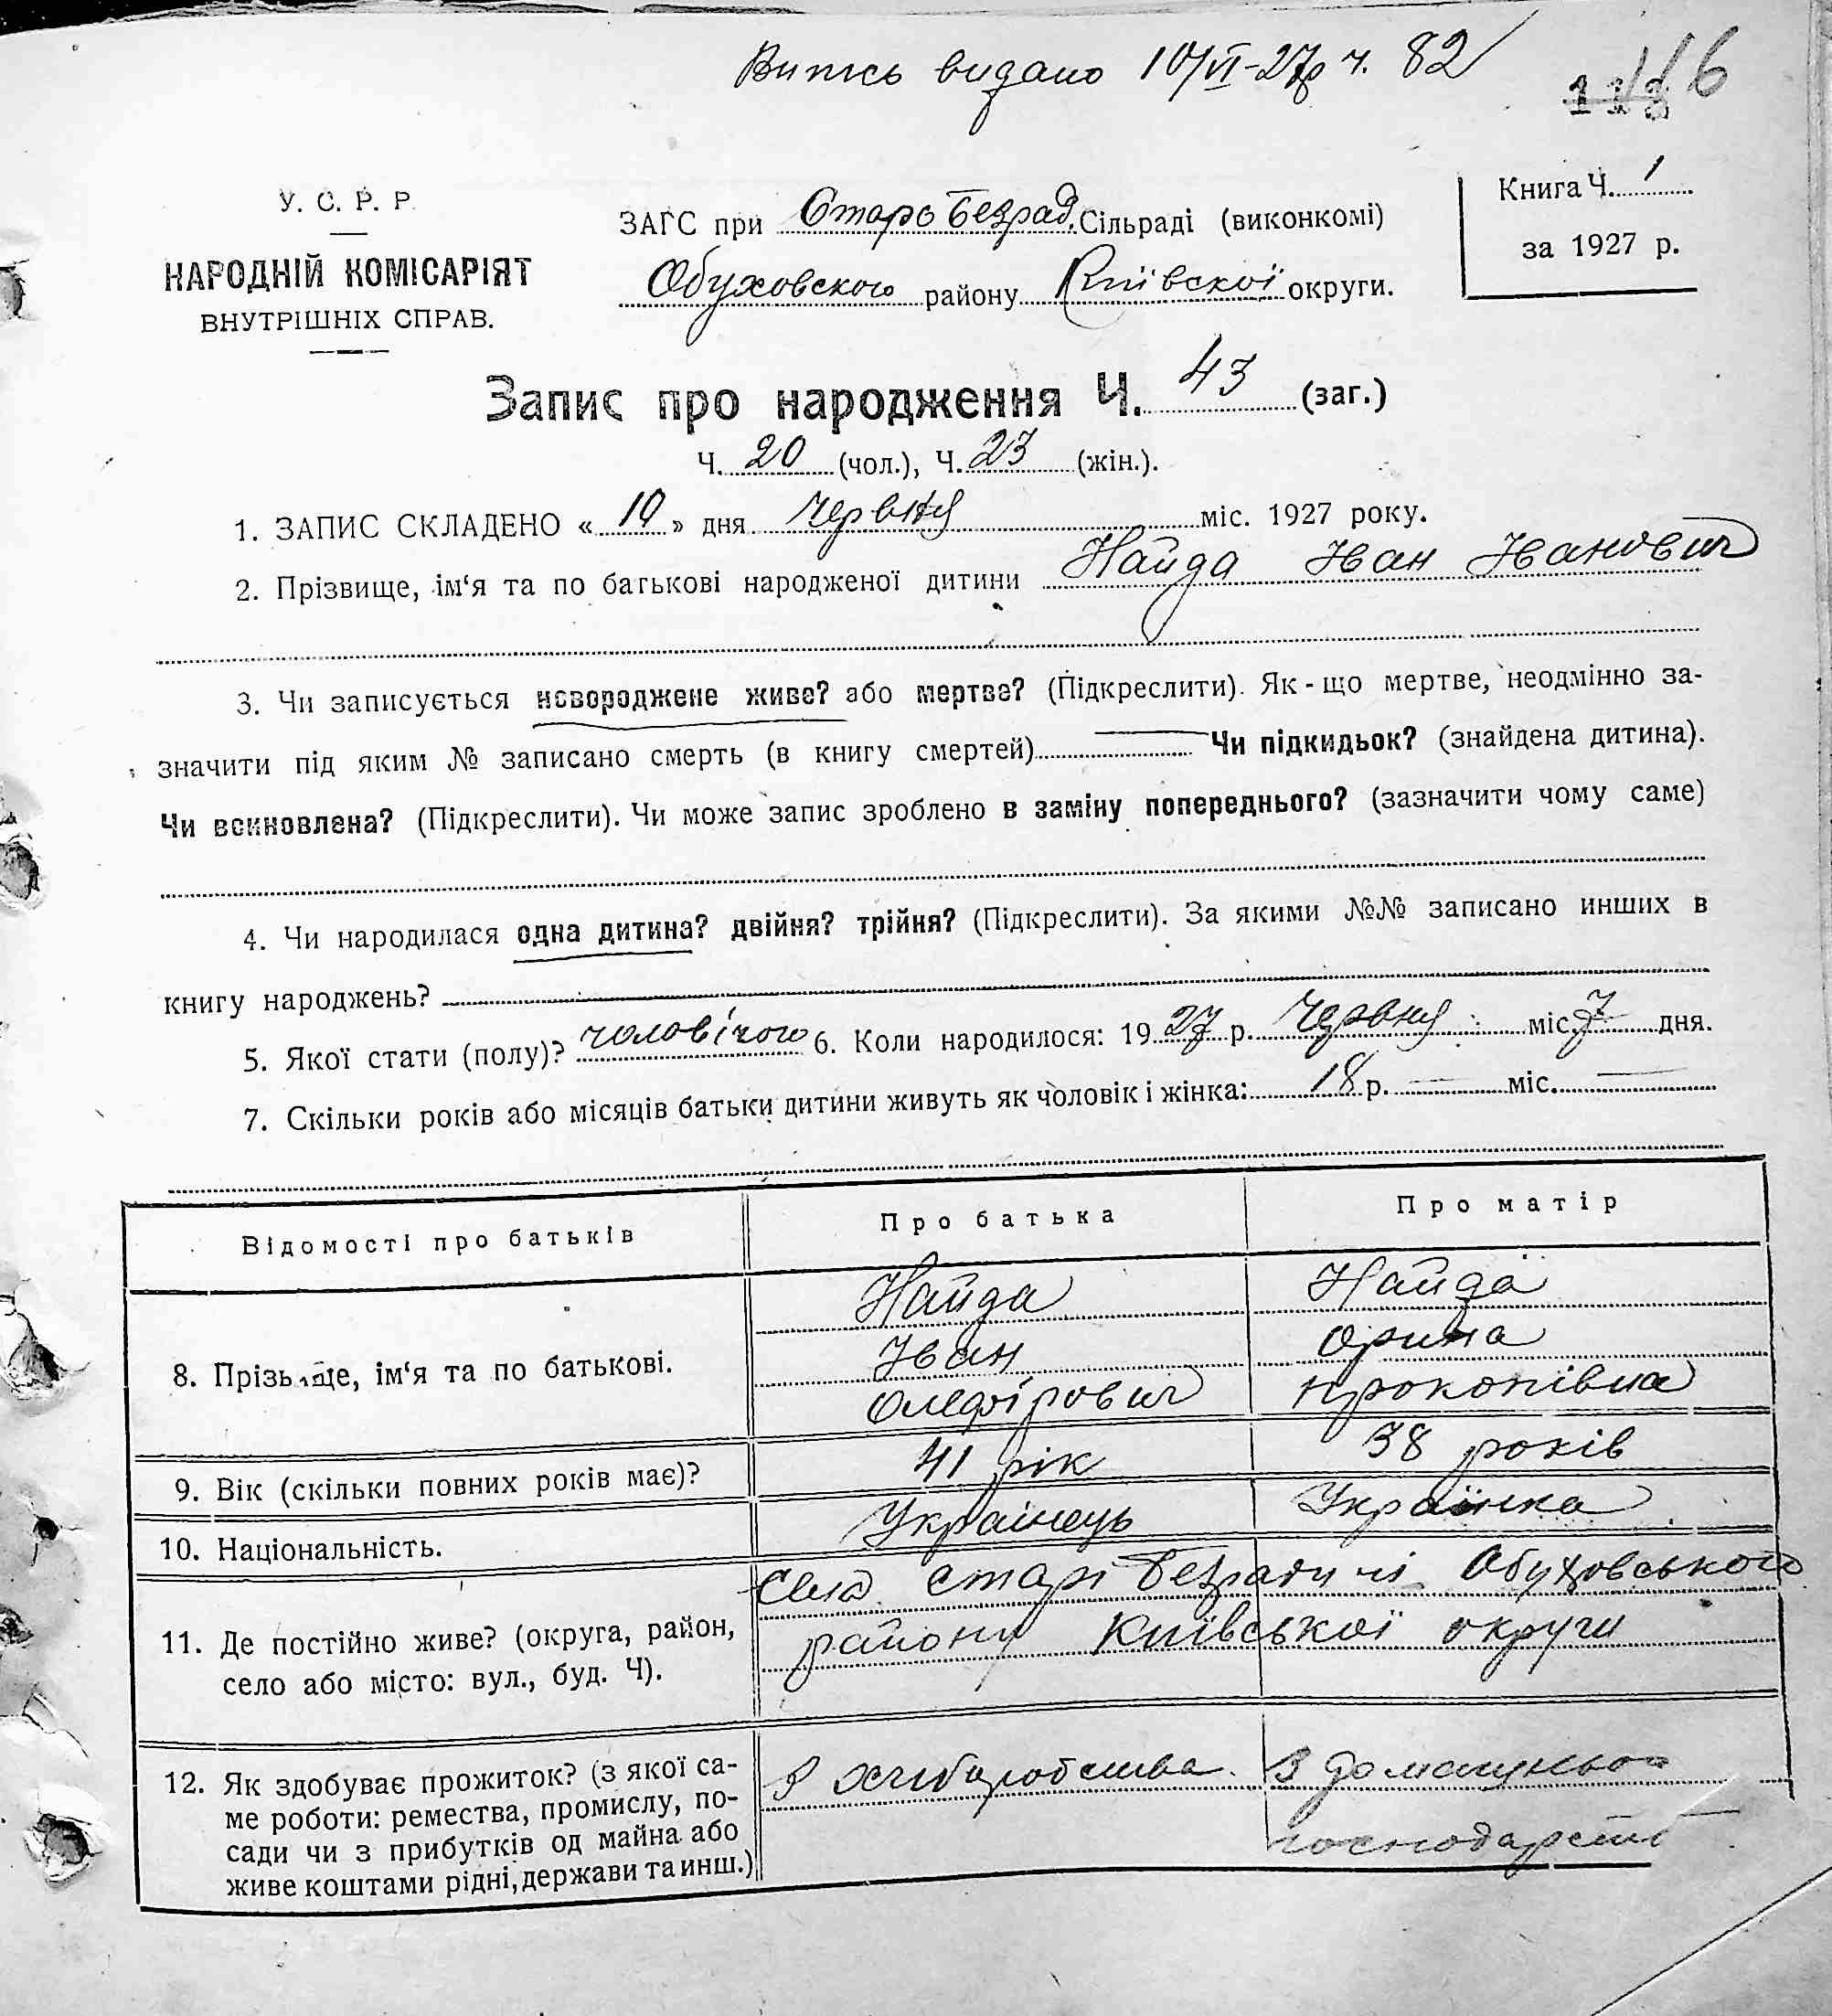 Випись видано 10/VI-27р ч. 82
116
У. С. Р. Р.
НАРОДНІЙ КОМІСАРІЯТ
ВНУТРІШНІХ СПРАВ.
ЗАГС при Старо Безрад. Сільраді (виконкомі)
Обуховского району Київскої округи.
Книга Ч. 1
за 1927 р.
Запис про народження Ч. 43 (заг.)
Ч. 20 (чол.), Ч. 23 (жін.).
1. ЗАПИС СКЛАДЕНО « 10 » дня Червня міс. 1927 року.
2. Прізвище, ім‘я та по батькові народженої дитини Найда Іван Іванович
3. Чи записується новороджене живе? або мертве? (Підкреслити). Як-що мертве, неодмінно за-
значити під яким № записано смерть (в книгу смертей) Чи підкидьок? (знайдена дитина).
Чи всиновлена? (Підкреслити). Чи може запис зроблено в заміну попереднього? (зазначити чому саме)
4. Чи народилася одна дитина? двійня? трійня? (Підкреслити). За якими №№ записано инших в
книгу народжень?
5. Якої стати (полу)? чоловічого 6. Коли народилося: 1927 р. Червня міс. 7 дня.
7. Скільки років або місяців батьки дитини живуть як чоловік і жінка: 18 р. — міс. —
Відомості про батьків Про батька Про матір
8. Прізвище, ім‘я та по батькові.
Найда Найда
Іван Орина
Олефірович Прокопівна
9. Вік (скільки повних років має)? 41 рік 38 років
10. Національність. Українець Українка
11. Де постійно живе? (округа, район,
село або місто: вул., буд. Ч).
Села Старі Безрадичі Обуховського
району Київської округи
12. Як здобуває прожиток? (з якої са-
ме роботи: ремества, промислу, по-
сади чи з прибутків од майна або
живе коштами рідні, держави та инш.)
З хліборобства. З домашнього
господарств